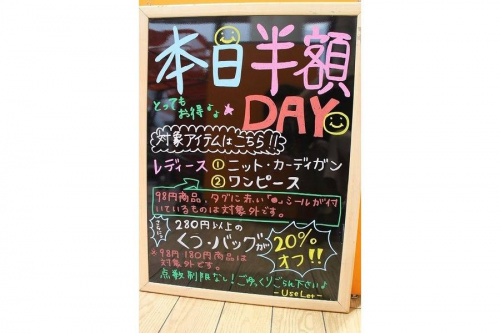 本日半額
とっても
お得よょ
DAY
対象アイテムはこちら!!
レディース ①ニット・カーディガン
②ワンピース
98円商品、タグに赤い「●」シールが付
いているものは対象外です。
さらに
280円以上の
くつ・バッグが
20%
オフ!!
※98円180円商品は
対象外です。
点数制限なし!ごゆっくりごらん下さいよ
-UseLet-